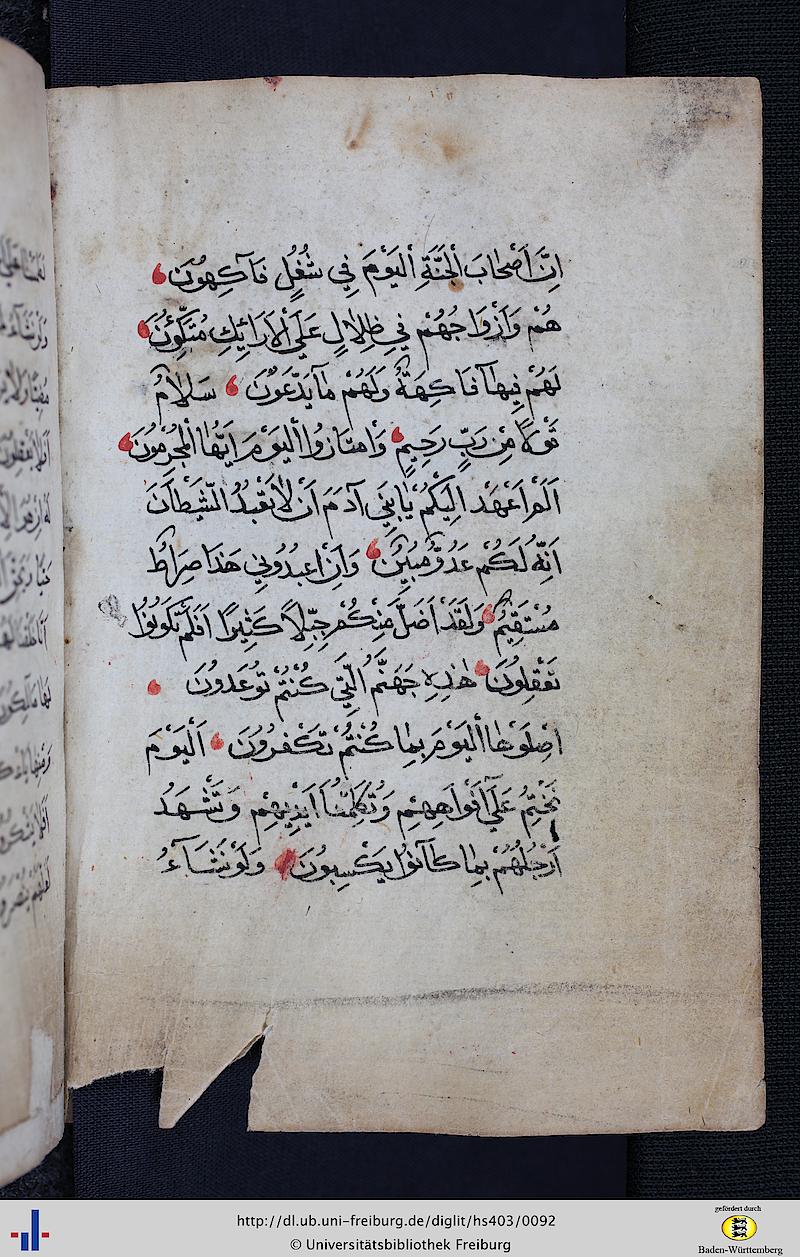 اِنَّ اَصْحَابَ الْجَنَّةِ الْيَوْمَ فِي شُغُلٍ فَآكِهُونَ
هُمْ وَاَزْوَاجُهُمْ فِي ظِلَالٍ عَلَي الْاَرَائِكِ مُتَّكِؤُنَ
لَهُمْ فِيهَآ فَاكِهَةٌ وَلَهُمْ مَا يَدَّعَوُنَ سَلَامٌ
قَوْلًا مِنْ رَبٍّ رَحِيمٍ وَامْتَازُوا الْيَوْمَ اَيُّهَا الْمُجْرِمُونَ
اَلَمْ اَعْهَدْ اِلَيْكُمْ يَابَنِي آدَمَ اَنْ لَا تَعْبُدُ الشَّيْطَانَ
اَنِّهُ لَكُمْ عَدُوٌّ مُبِينٌ وَاَنِ اعْبُدُونِي هَذَا صِرَاطٌ
مُسْتَقِيمٌ وَلَقَدْ اَضَلَّ مِنْكُمْ جِبِلًّا كَثِيرًا اَفَلَمْ تَكُونُوا
تَعْقِلُونَ هٰذِهِ جَهَنَّمُ الَّتِي كُنْتُمْ تُوعَدُونَ
اصْلَوْهَا الْيَوْمَ بِمَا كُنْتُمْ تَكْفُرُونَ اَلْيَوْمَ
نَخْتِمُ عَلَي اَفْوَاهِهِمْ وَتُكَلِّمُنَا اَيْدِيهِمْ وَتَشْهَدُ
اَرْجُلُهُمْ بِمَا كَانُوا يَكْسِبُونَ وَلَوْ نَشَآءُ
http://dl.ub.uni-freiburg.de/diglit/hs403/0092
© Universitätsbibliothek Freiburg
gefördert durch
Baden-Württemberg